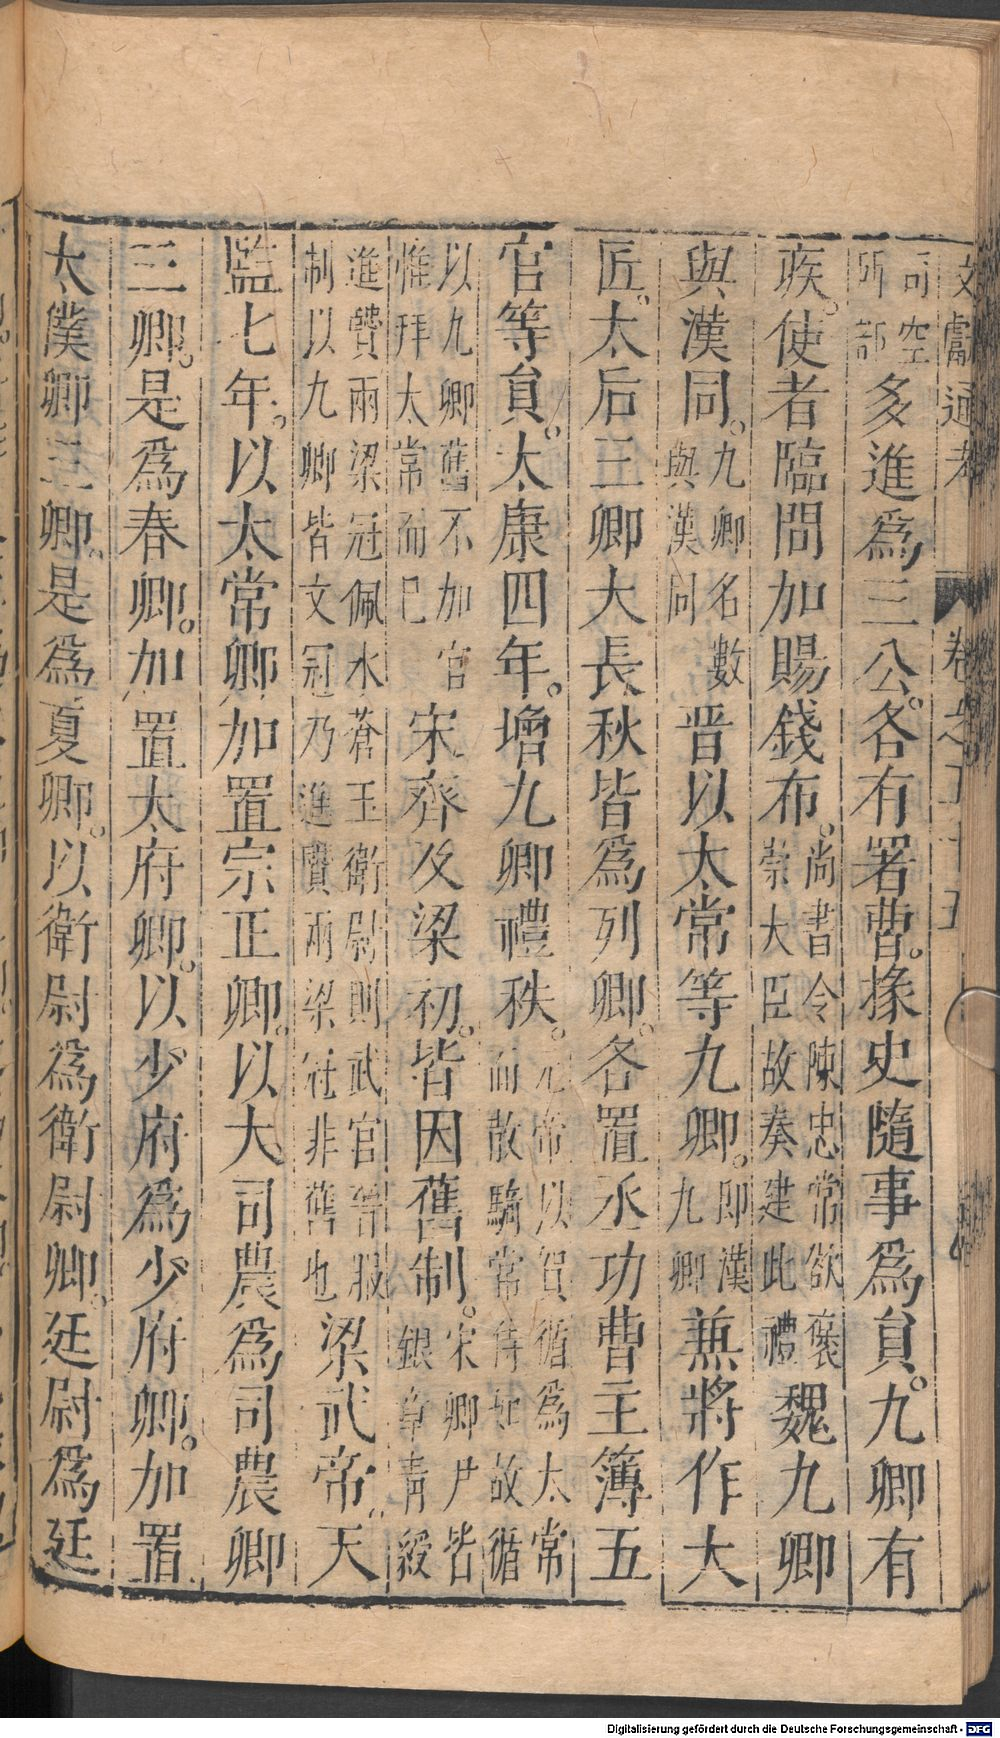 文獻通考 卷之五十五
司空所部多進爲三公。各有署曹。掾史隨事爲員。九卿有
疾。使者臨問加賜錢布。尚書令陳忠常欲褒崇大臣故奏建此禮魏九卿
與漢同。九卿名數與漢同晋以太常等九卿。即漢九卿兼將作大
匠。太后三卿大長秋皆爲列卿。各置丞功曹主簿五
官等員。太康四年。增九卿禮秩。元帝以賀循爲太常而散騎常侍如故循
以九卿舊不加官惟拜太常而已宋齊及梁初。皆因舊制。宋卿尹皆銀章青綬
進賢兩梁冠佩水蒼玉衛尉則武官晉服制以九卿皆文冠乃進賢兩梁冠非舊也梁武帝天
監七年。以太常卿加置宗正卿。以大司農爲司農卿
三卿。是爲春卿。加置太府卿。以少府爲少府卿。加置
太僕卿三卿。是爲夏卿。以衛尉爲衛尉卿。廷尉爲廷
Digitalisierung gefördert durch die Deutsche Forschungsgemeinschaft - DFG